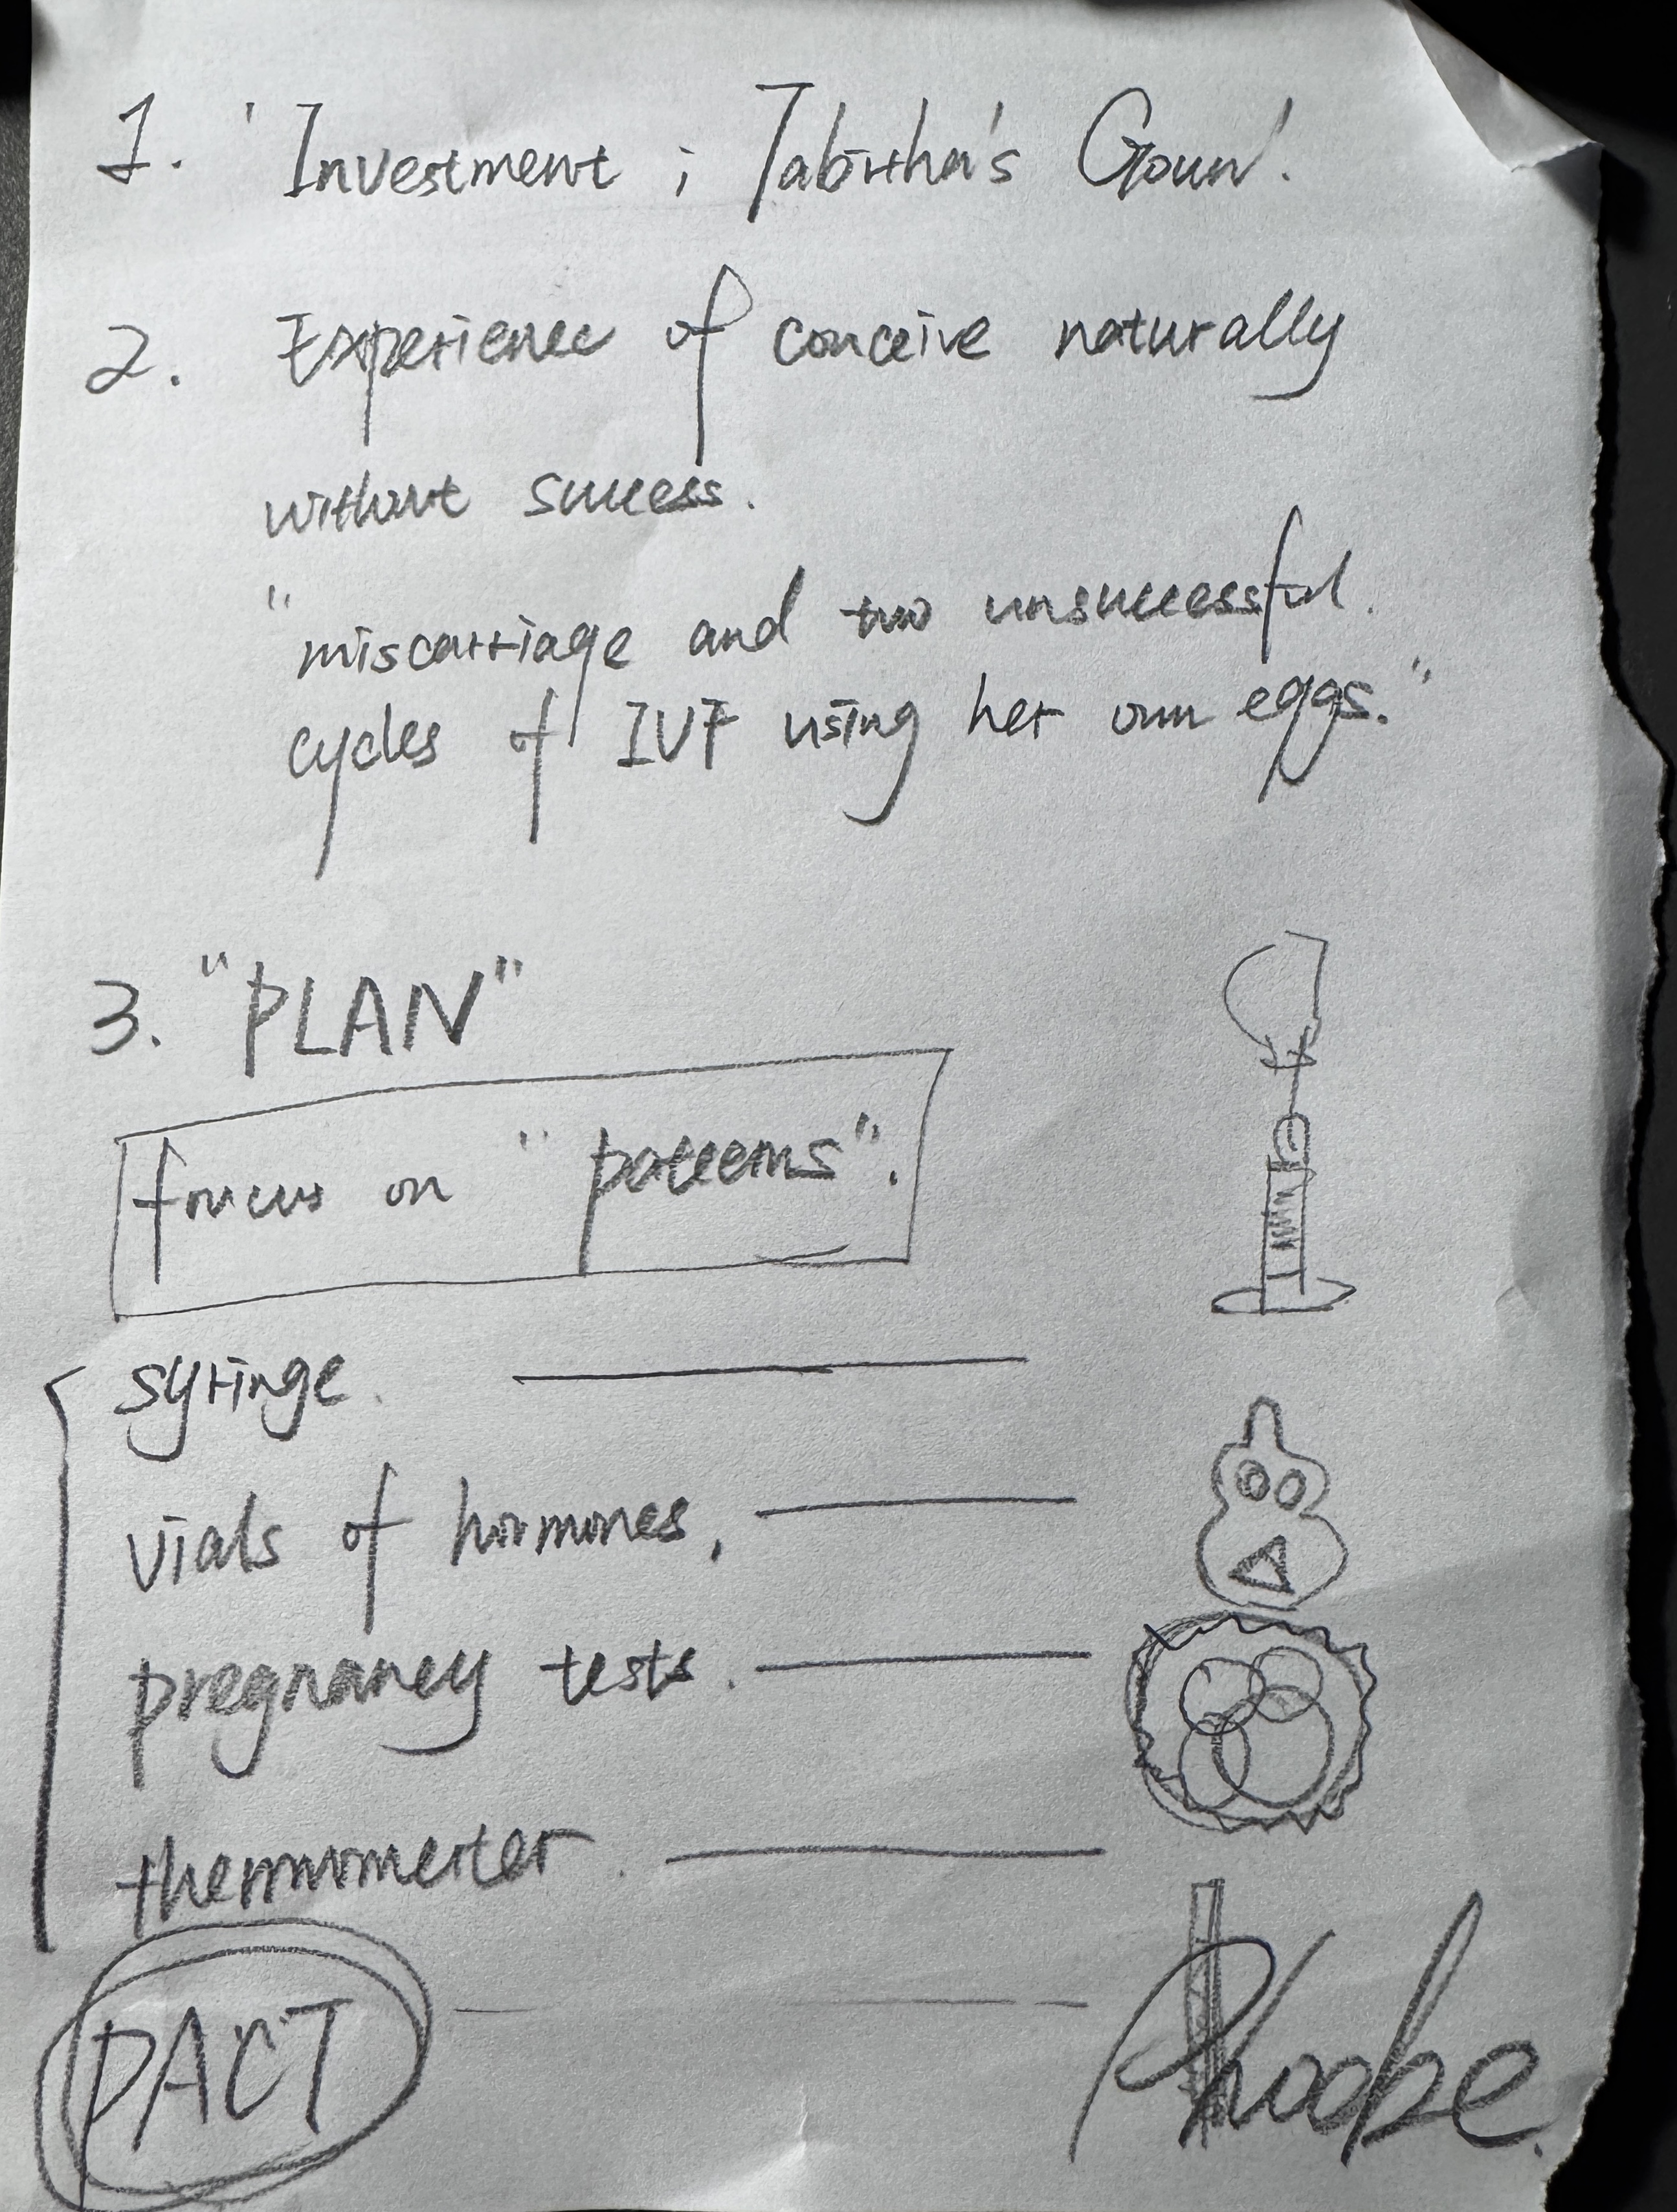 1. 'Investment ; Tabitha's Gown'.
2. Experience of conceive naturally
without success.
"miscarriage and two unsuccessful.
cycles of IVF using her own eggs."
3. "PLAN"
focus on "patterns".
syringe.
vials of hormones,
pregnancy tests.
thermometer.
PACT
Phoebe.